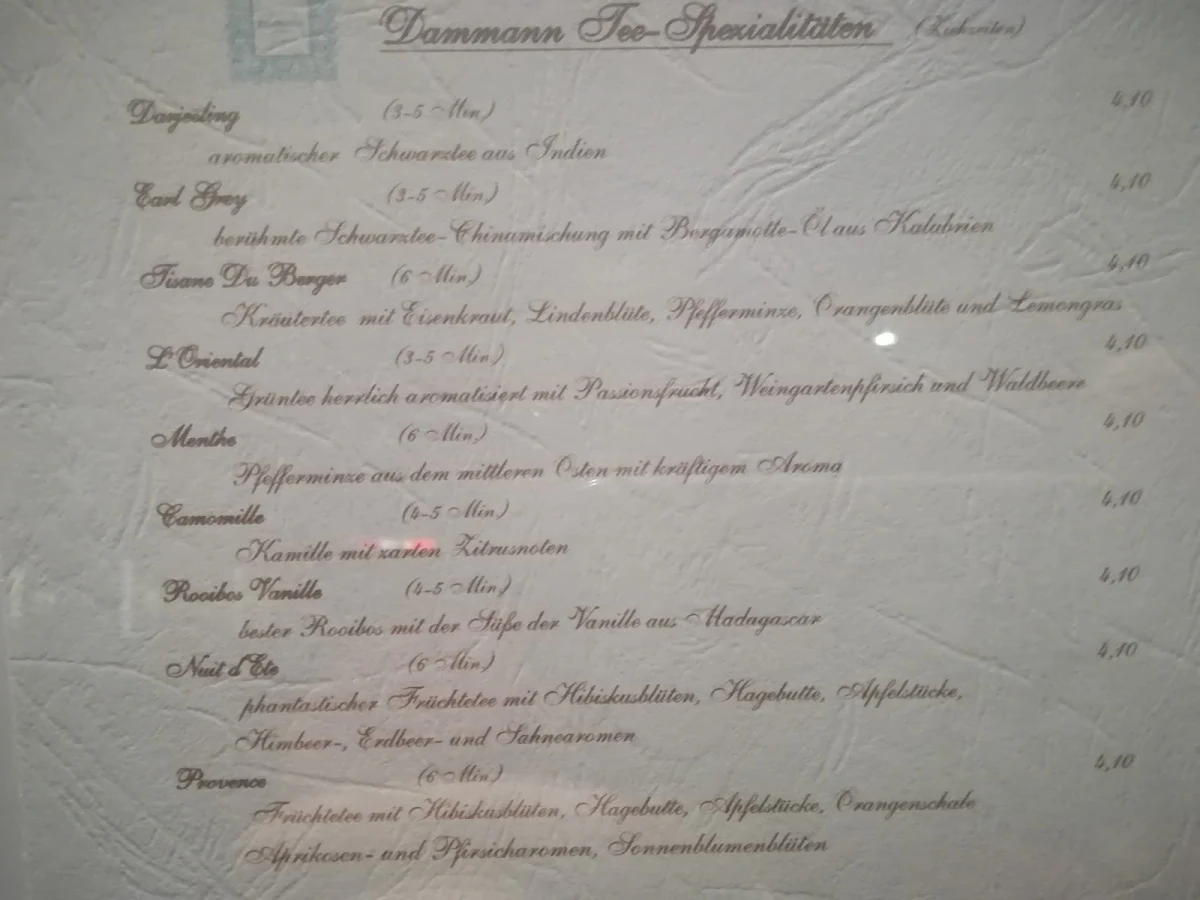 Dammann Tee-Spezialitäten (Ziehzeiten)
Darjeeling (3-5 Min.) 4,10
aromatischer Schwarztee aus Indien
Earl Grey (3-5 Min.) 4,10
berühmte Schwarztee-Chinamischung mit Bergamotte-Öl aus Kalabrien
Tisane Du Berger (6 Min.) 4,10
Kräutertee mit Eisenkraut, Lindenblüte, Pfefferminze, Orangenblüte und Lemongras
L'Oriental (3-5 Min.) 4,10
Grüntee herrlich aromatisiert mit Passionsfrucht, Weingartenpfirsich und Waldbeere
Menthe (6 Min.) 4,10
Pfefferminze aus dem mittleren Osten mit kräftigem Aroma
Camomille (4-5 Min.) 4,10
Kamille mit zarten Zitrusnoten
Rooibos Vanille (4-5 Min.) 4,10
bester Rooibos mit der Süße der Vanille aus Madagascar
Nuit d'Ete (6 Min.) 4,10
phantastischer Früchtetee mit Hibiskusblüten, Hagebutte, Apfelstücke,
Himbeer-, Erdbeer- und Sahnearomen
Provence (6 Min.) 4,10
Früchtetee mit Hibiskusblüten, Hagebutte, Apfelstücke, Orangenschale
Aprikosen- und Pfirsicharomen, Sonnenblumenblüten